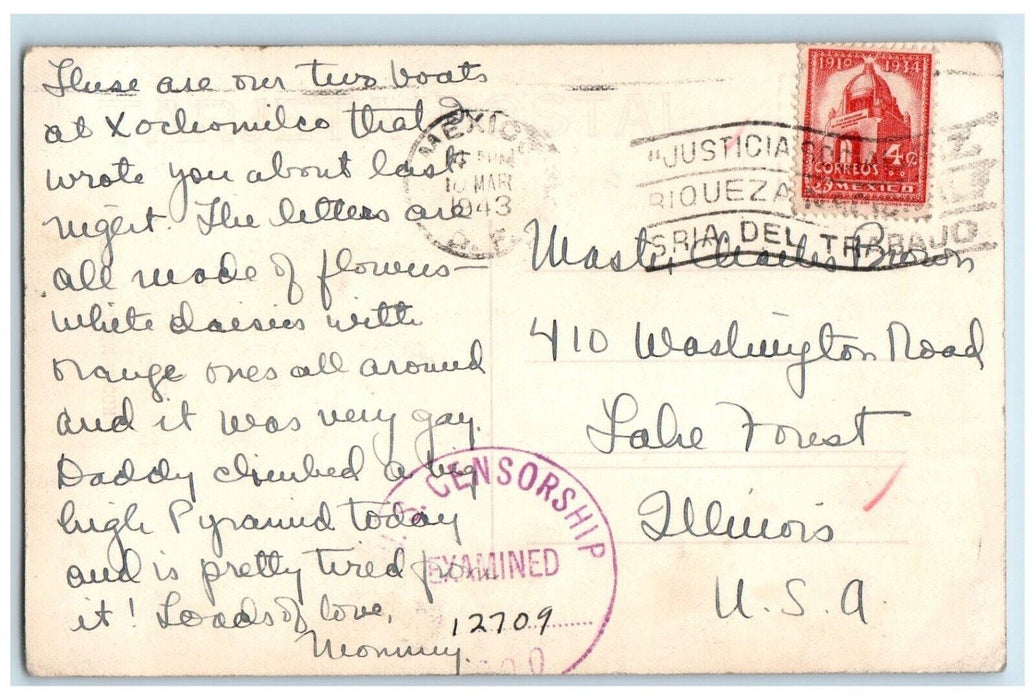 These are our two boats
at Xochomilco that I
wrote you about last
night. The letters are
all made of flowers—
white daisies with
orange ones all around
and it was very gay.
Daddy climbed a big
high Pyramid today
and is pretty tired from
it! Loads of love,
Mommy.
MEXICO
10 MAR
1943
"JUSTICIA
RIQUEZA
SRIA. DEL TRABAJO
1910 1934
4c
CORREOS
MEXICO
Mastr. Charles Brown
410 Washington Road
Lake Forest
Illinois
U.S.A.
U.S. CENSORSHIP
EXAMINED
12709